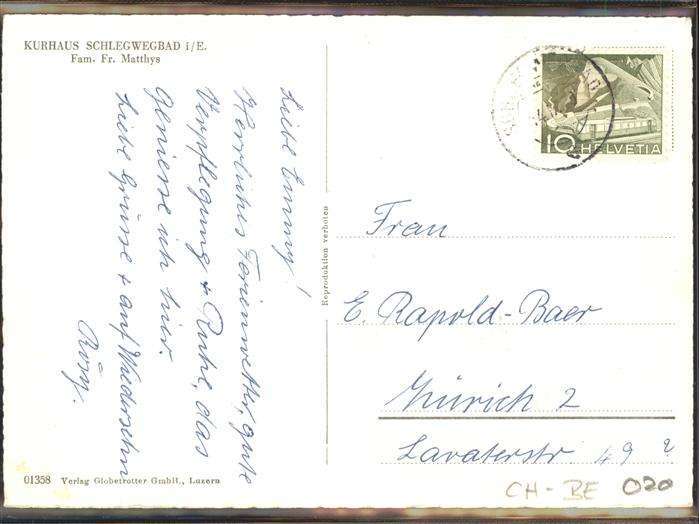 KURHAUS SCHLEGWEGBAD i/E.
Fam. Fr. Matthys
Liebe Emmy!
Herrliches Ferienwetter, gute
Verpflegung & Ruhe, das
Geniesse ich hier.
Liebe Grüsse & auf Wiedersehn
Rösy.
01358 Verlag Globetrotter GmbH., Luzern
Reproduktion verboten
10 HELVETIA
Frau
E. Rapold-Baer
Zürich 2
Lavaterstr 49
CH-BE 020